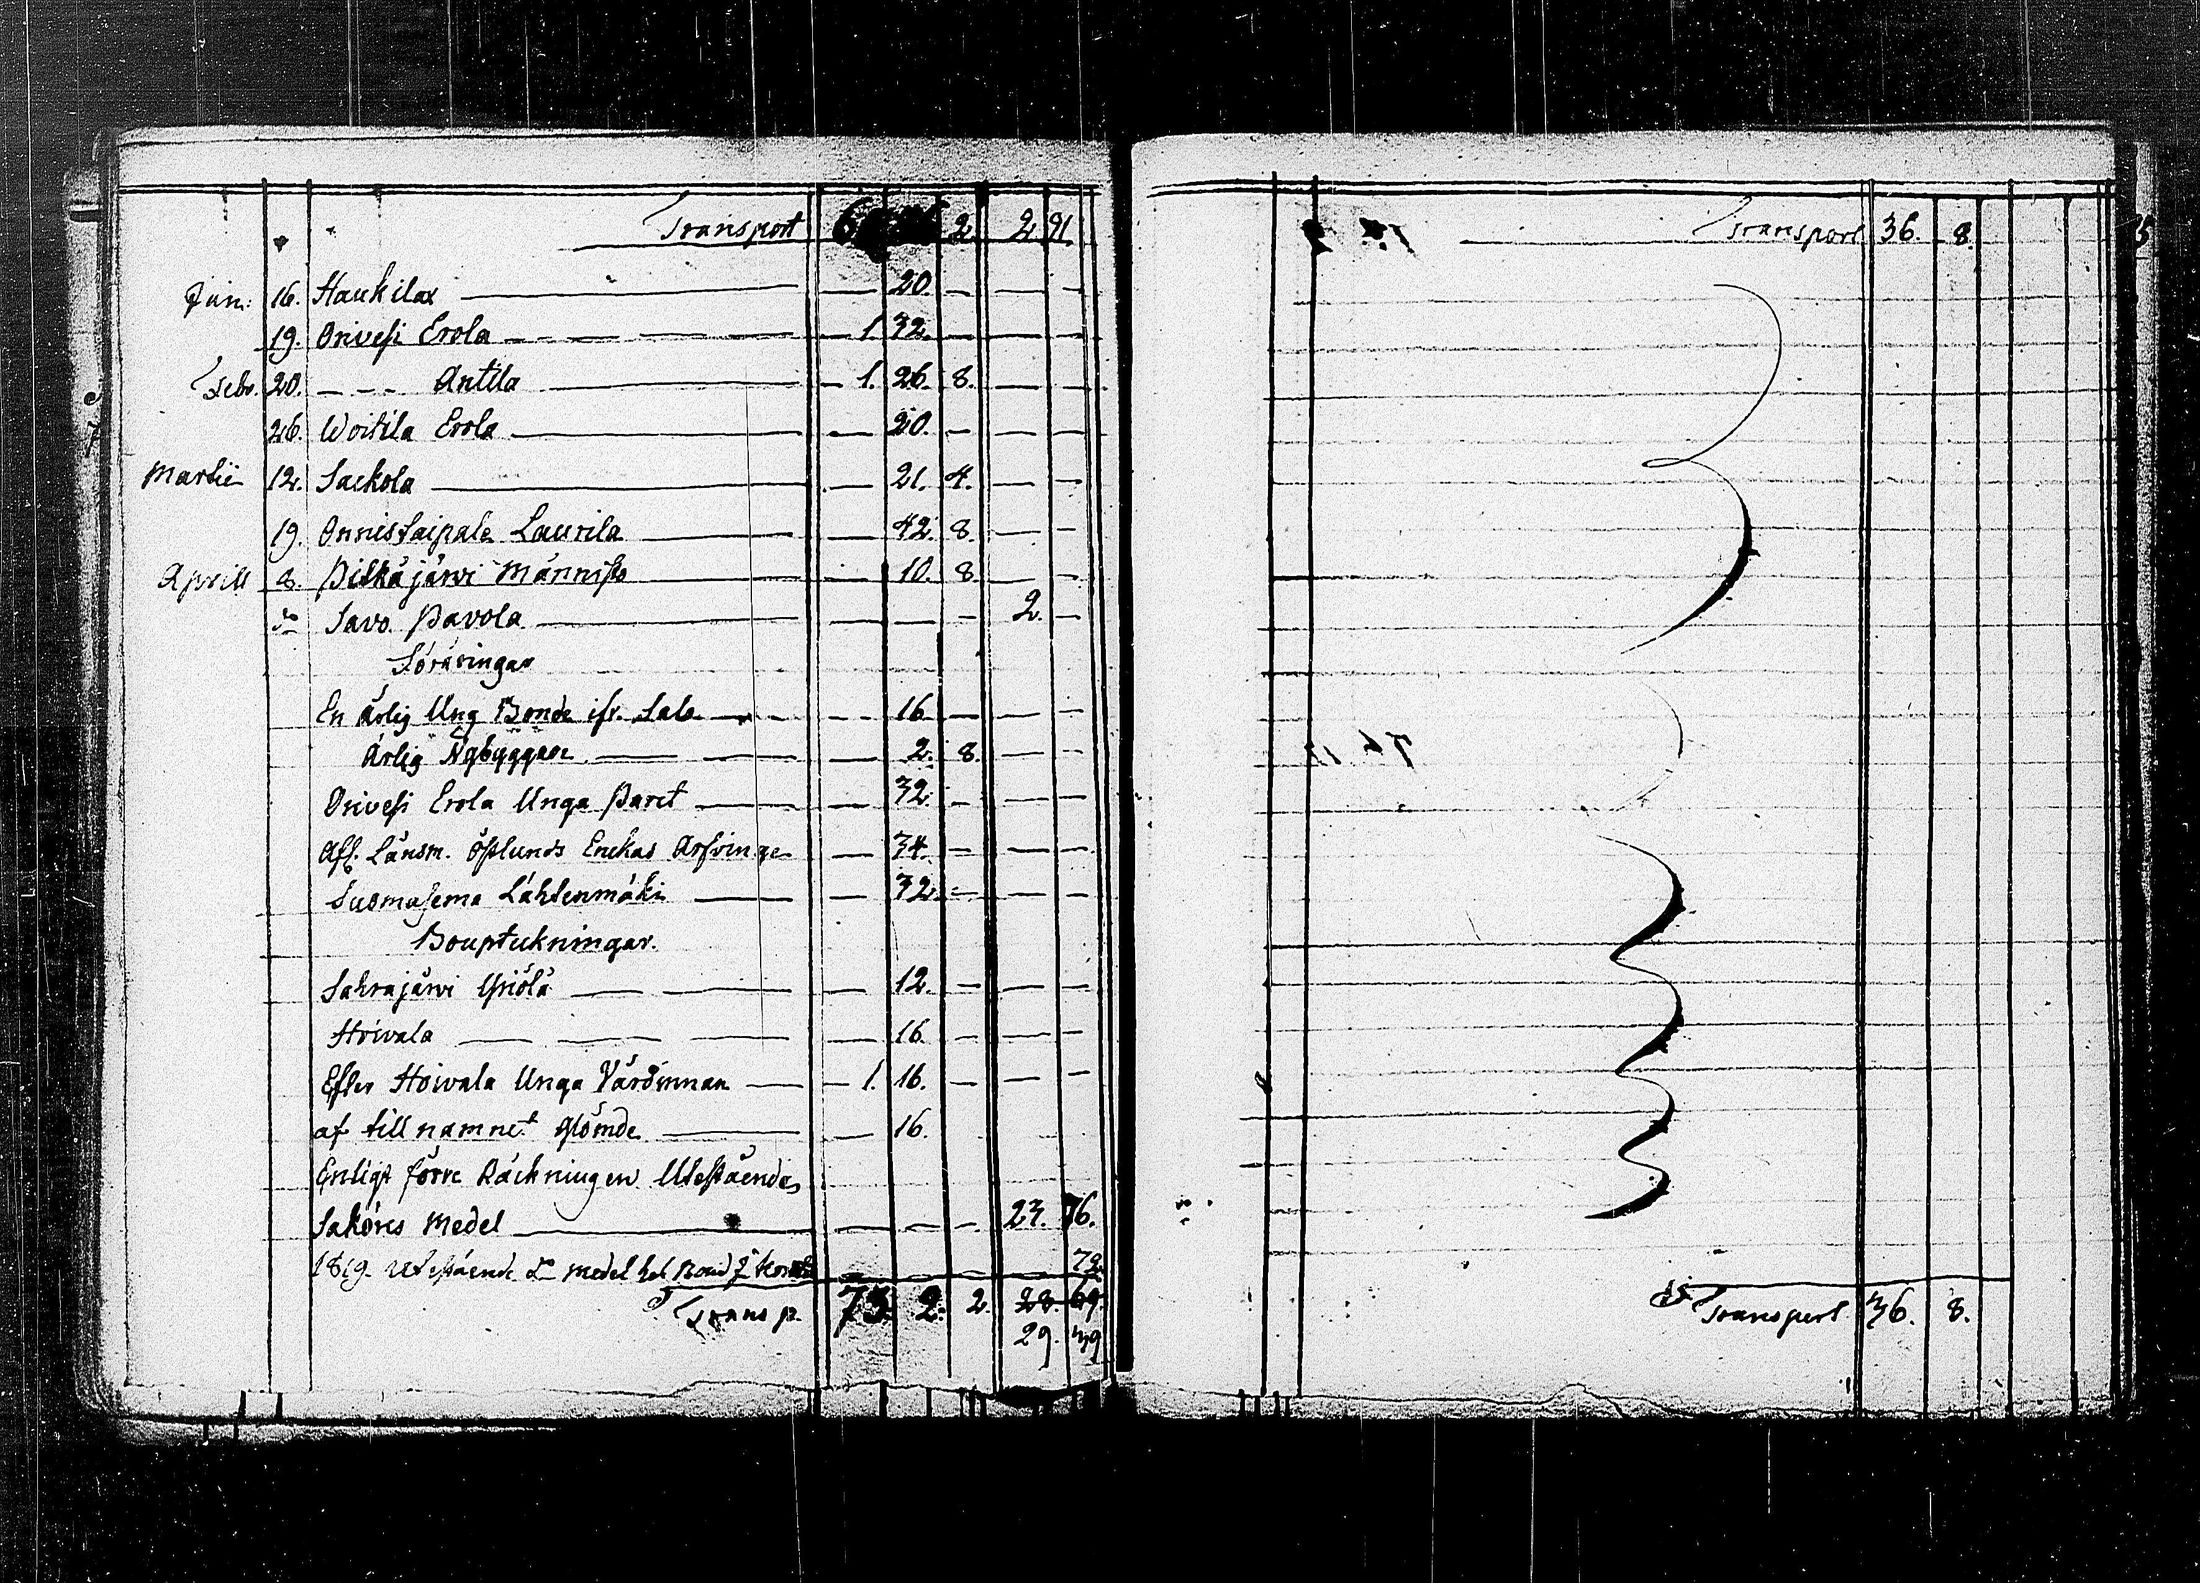 Transport 2. 2. 91
Jan: 16. Haukilax — 20. — — —
19. Orivesi Erola — 1. 32. — — —
Febr. 20. — — — Antila — 1. 26. 8. — —
26. Woitila Erola — 20. — — —
Martii 12. Sackola — 21. 4. — —
19. Onnistaipale Laurila — 42. 8. — —
Aprill 8. Pitkäjärwi Männistö — 10. 8. — —
do Savo Pavola — — — 2. —
Föräringar
En ärlig Ung Bonde ifr. Salo — 16. — — —
Ärlig Nybyggare — 2. 8. — —
Orivesi Erola Unga Paret — 32. — — —
Afl. Länsm. Östlunds Enckas Arfvinge — 34. — — —
Suomasema Lähteenmäki — 32. — — —
Bouptekningar.
Sahrajärwi Yriölä — 12. — — —
Hoivala — 16. — — —
Efter Hoivala Unga Värdinnan — 1. 16. — — —
af till namnet Glömde — 16.
Enligt förre Räckningen Utestående
Saköres Medel — — — 23. 76.
1819. Utestående do medel hos 72.
Transp. 73. 2. 2. 28. 69.
29. 39
Transport 36. 8.
Transport 36. 8.